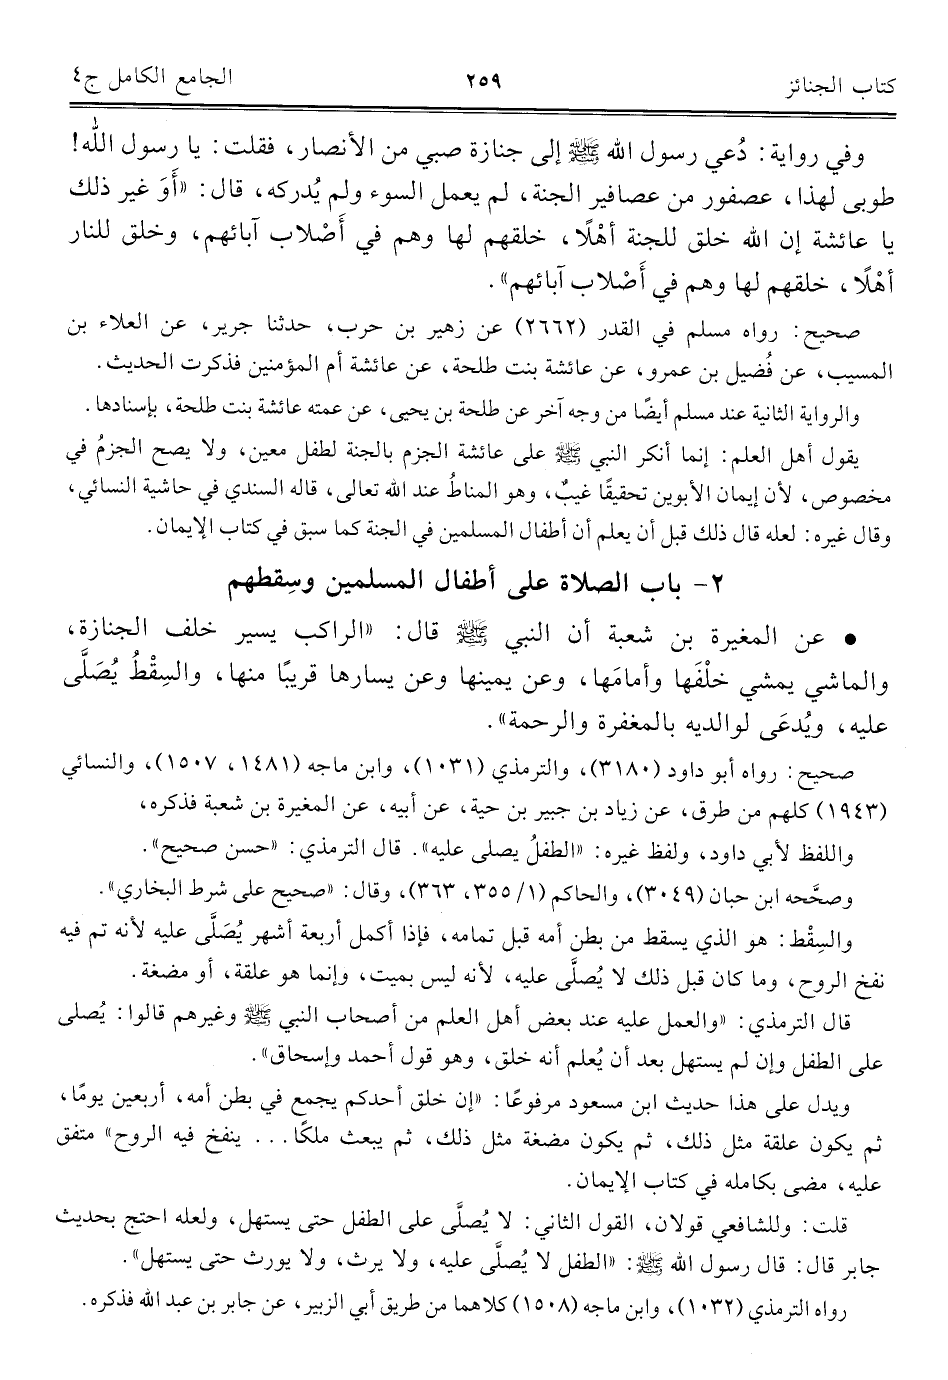 كتاب الجنائز ٢٥٩ الجامع الكامل ج٤
وفي رواية: دُعي رسول الله ﷺ إلى جنازة صبي من الأنصار، فقلت: يا رسول الله!
طوبى لهذا، عصفور من عصافير الجنة، لم يعمل السوء ولم يُدركه، قال: «أَوَ غير ذلك
يا عائشة إن الله خلق للجنة أهْلًا، خلقهم لها وهم في أَصْلاب آبائهم، وخلق للنار
أهْلًا، خلقهم لها وهم في أَصْلاب آبائهم».
صحيح: رواه مسلم في القدر (٢٦٦٢) عن زهير بن حرب، حدثنا جرير، عن العلاء بن
المسيب، عن فُضيل بن عمرو، عن عائشة بنت طلحة، عن عائشة أم المؤمنين فذكرت الحديث.
والرواية الثانية عند مسلم أيضًا من وجه آخر عن طلحة بن يحيى، عن عمته عائشة بنت طلحة، بإسنادها.
يقول أهل العلم: إنما أنكر النبي ﷺ على عائشة الجزم بالجنة لطفل معين، ولا يصح الجزمُ في
مخصوص، لأن إيمان الأبوين تحقيقًا غيبٌ، وهو المناطُ عند الله تعالى، قاله السندي في حاشية النسائي،
وقال غيره: لعله قال ذلك قبل أن يعلم أن أطفال المسلمين في الجنة كما سبق في كتاب الإيمان.
٢- باب الصلاة على أطفال المسلمين وسِقطهم
• عن المغيرة بن شعبة أن النبي ﷺ قال: «الراكب يسير خلف الجنازة،
والماشي يمشي خلْفَها وأمامَها، وعن يمينها وعن يسارها قريبًا منها، والسِقْطُ يُصَلَّى
عليه، ويُدعَى لوالديه بالمغفرة والرحمة».
صحيح: رواه أبو داود (٣١٨٠)، والترمذي (١٠٣١)، وابن ماجه (١٤٨١، ١٥٠٧)، والنسائي
(١٩٤٣) كلهم من طرق، عن زياد بن جبير بن حية، عن أبيه، عن المغيرة بن شعبة فذكره،
واللفظ لأبي داود، ولفظ غيره: «الطفلُ يصلى عليه». قال الترمذي: «حسن صحيح».
وصحَّحه ابن حبان (٣٠٤٩)، والحاكم (١/ ٣٥٥، ٣٦٣)، وقال: «صحيح على شرط البخاري».
والسِقْط: هو الذي يسقط من بطن أمه قبل تمامه، فإذا أكمل أربعة أشهر يُصَلَّى عليه لأنه تم فيه
نفخ الروح، وما كان قبل ذلك لا يُصلَّى عليه، لأنه ليس بميت، وإنما هو علقة، أو مضغة.
قال الترمذي: «والعمل عليه عند بعض أهل العلم من أصحاب النبي ﷺ وغيرهم قالوا: يُصلى
على الطفل وإن لم يستهل بعد أن يُعلم أنه خلق، وهو قول أحمد وإسحاق».
ويدل على هذا حديث ابن مسعود مرفوعًا: «إن خلق أحدكم يجمع في بطن أمه، أربعين يومًا،
ثم يكون علقة مثل ذلك، ثم يكون مضغة مثل ذلك، ثم يبعث ملكًا... ينفخ فيه الروح» متفق
عليه، مضى بكامله في كتاب الإيمان.
قلت: وللشافعي قولان، القول الثاني: لا يُصلَّى على الطفل حتى يستهل، ولعله احتج بحديث
جابر قال: قال رسول الله ﷺ: «الطفل لا يُصلَّى عليه، ولا يرث، ولا يورث حتى يستهل».
رواه الترمذي (١٠٣٢)، وابن ماجه (١٥٠٨) كلاهما من طريق أبي الزبير، عن جابر بن عبد الله فذكره.